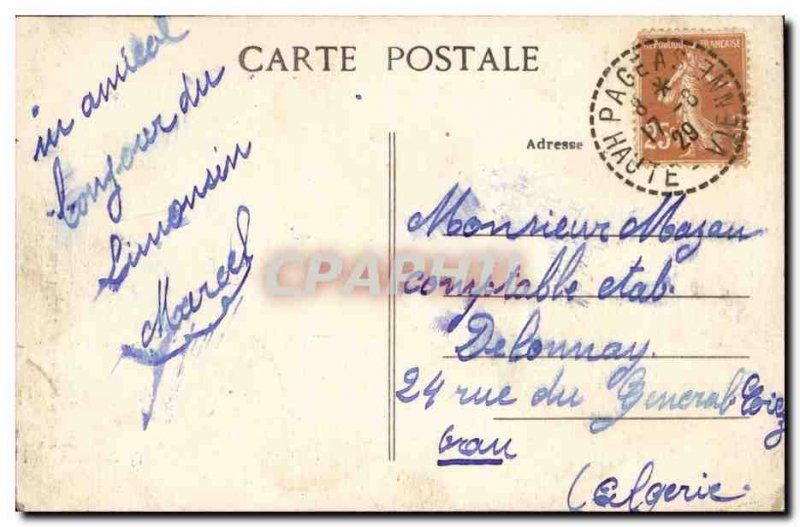 CARTE POSTALE
un amical
bonjour du
Limousin
Marcel
REPUBLIQUE FRANÇAISE
25
PAGEAS
8 *
17 -8
29
HAUTE VIENNE
Adresse
Monsieur Mazau
comptable etab.
Delonnay.
24 rue du General
Oran
(Algerie.
CPARHU